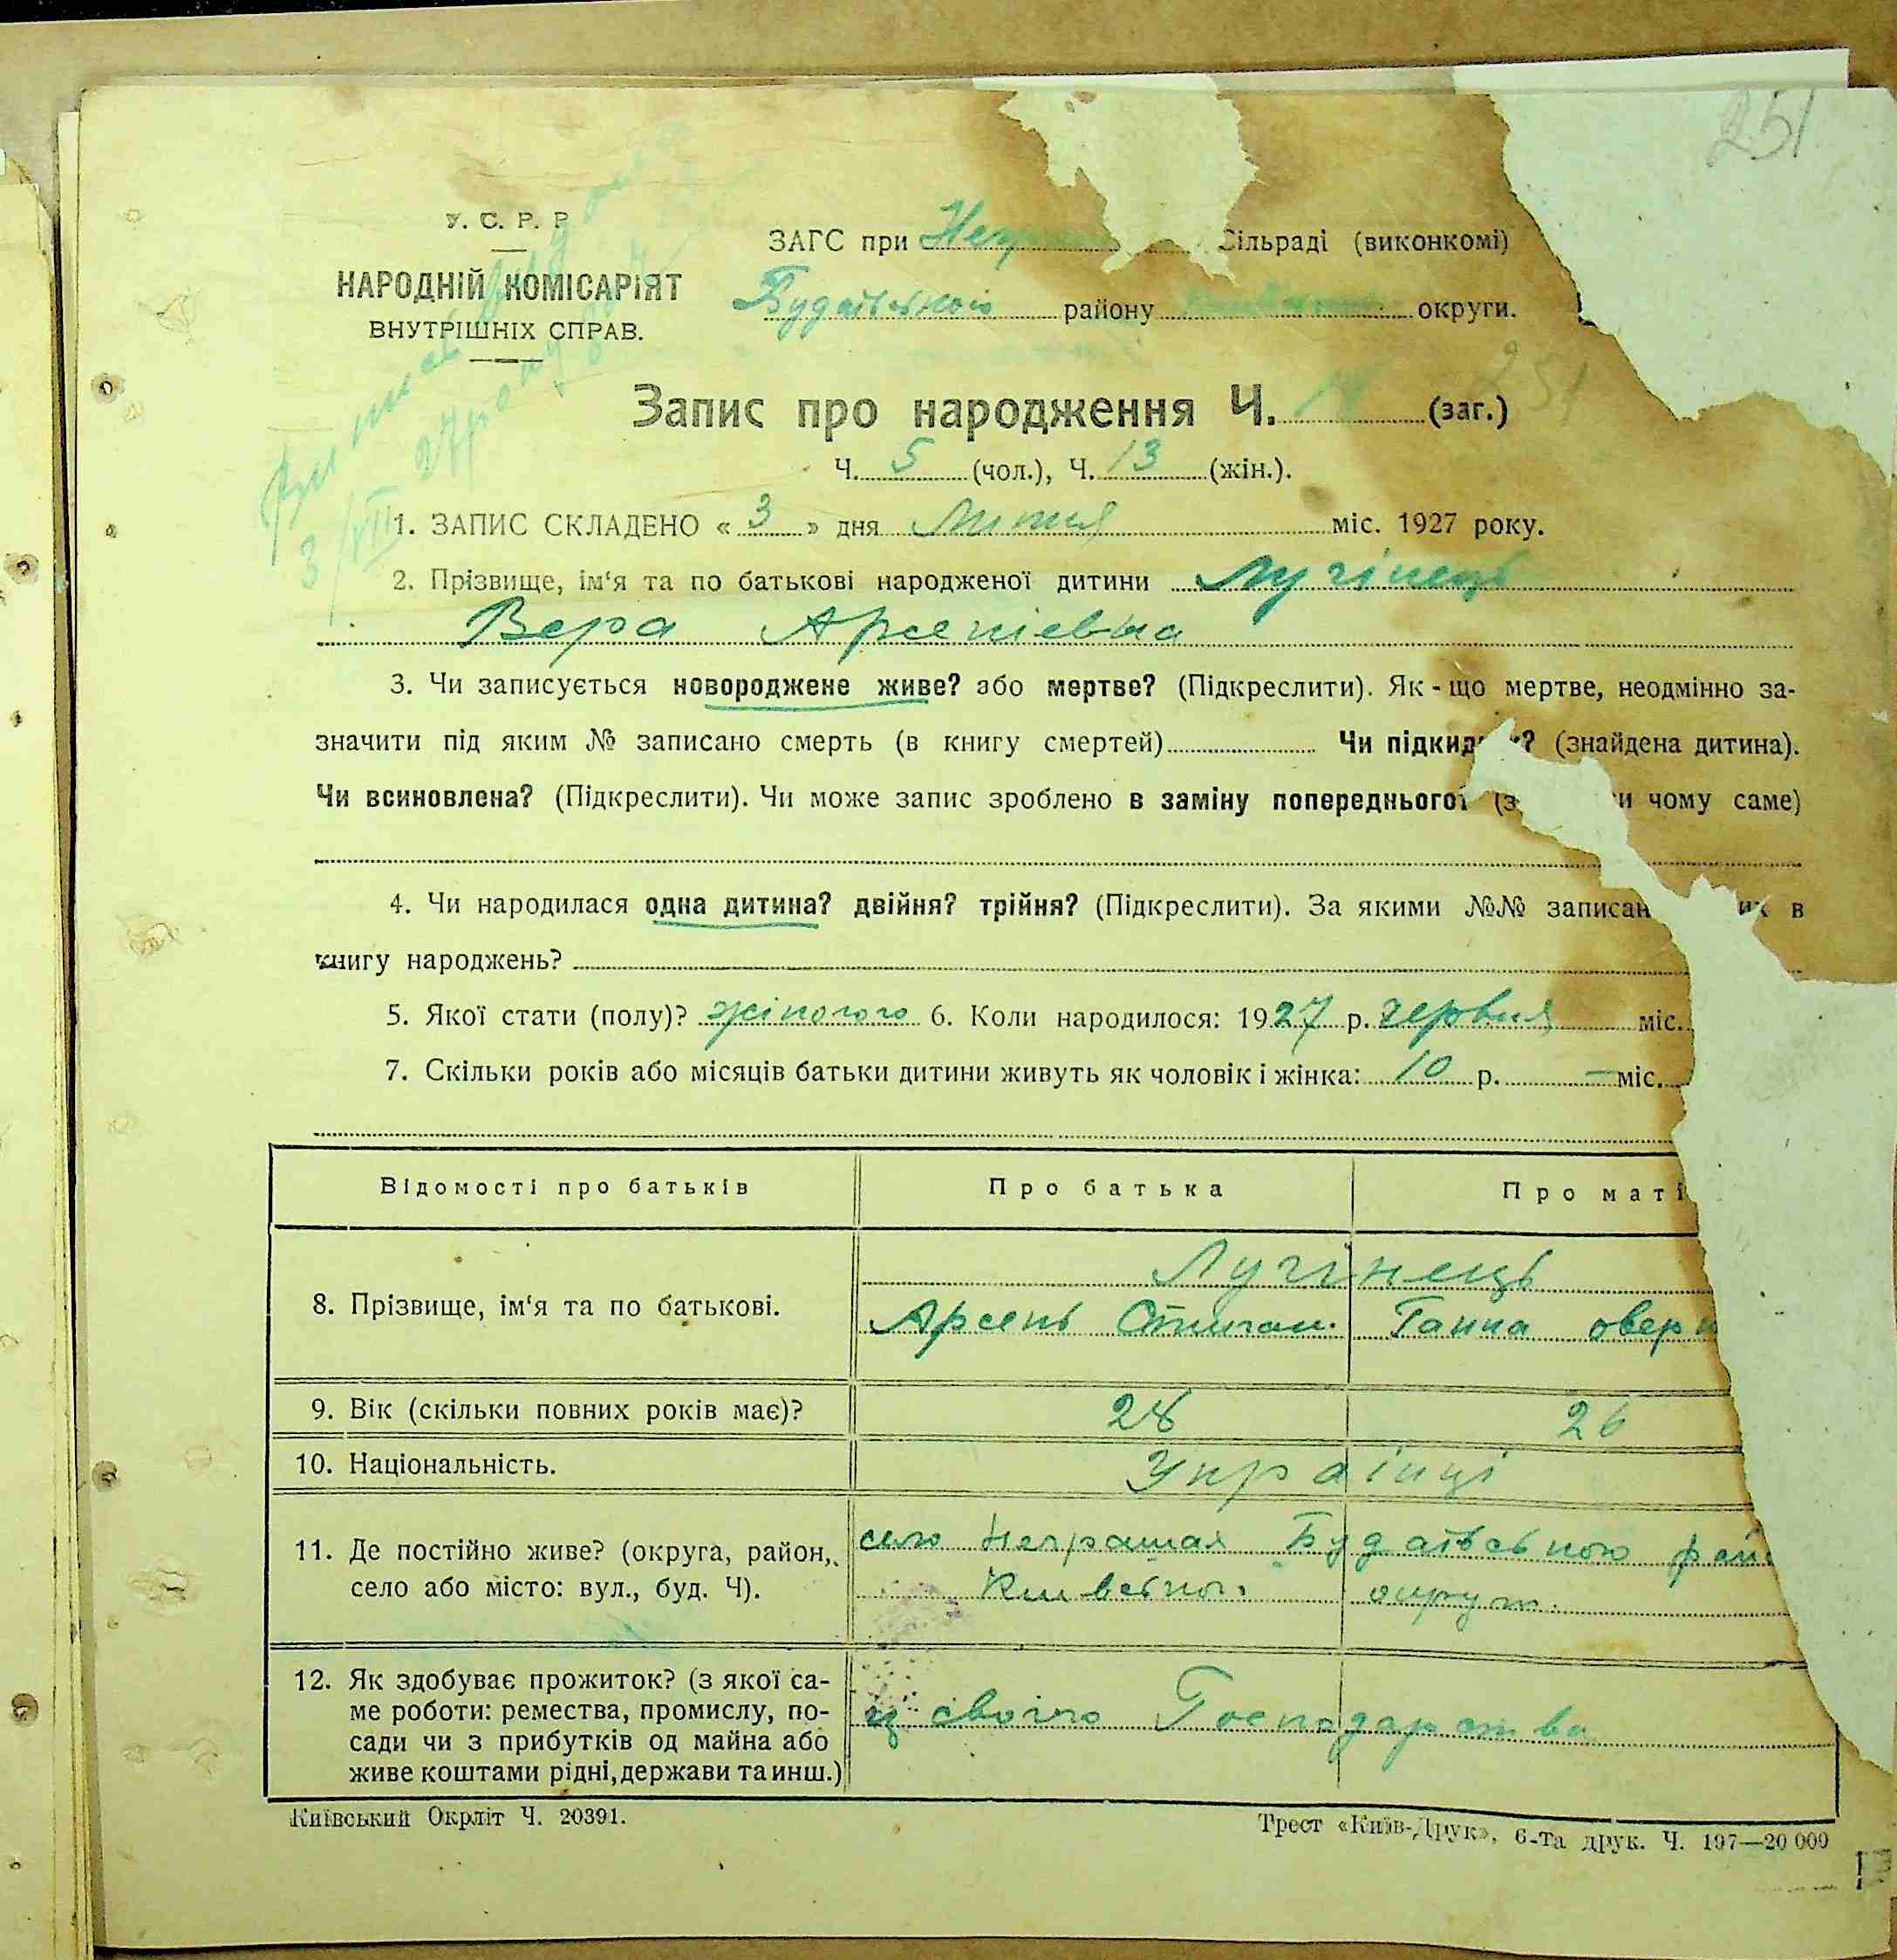 251
У. С. Р. Р.
НАРОДНІЙ КОМІСАРІЯТ
ВНУТРІШНІХ СПРАВ.
ЗАГС при Сільраді (виконкомі)
Будаївського району округи.
251
Запис про народження Ч. 18 (заг.)
Ч. 5 (чол.), Ч. 13 (жін.).
3/VII 27
1. ЗАПИС СКЛАДЕНО « 3 » дня Липня міс. 1927 року.
2. Прізвище, ім‘я та по батькові народженої дитини Лугінець
Вера Арсеніевна
3. Чи записується новороджене живе? або мертве? (Підкреслити). Як-що мертве, неодмінно за-
значити під яким № записано смерть (в книгу смертей) Чи (знайдена дитина).
Чи всиновлена? (Підкреслити). Чи може запис зроблено в заміну попереднього? чому саме)
4. Чи народилася одна дитина? двійня? трійня? (Підкреслити). За якими №№ в
книгу народжень?
5. Якої стати (полу)? жіночого 6. Коли народилося: 1927 р. червня міс.
7. Скільки років або місяців батьки дитини живуть як чоловік і жінка: 10 р. — міс.
Відомості про батьків Про батька Про маті
8. Прізвище, ім‘я та по батькові. Лугінець
Арсень Ганна
9. Вік (скільки повних років має)? 28 26
10. Національність. Українці
11. Де постійно живе? (округа, район, село Неграшая Будаївського рай
село або місто: вул., буд. Ч). Київсько. округи.
12. Як здобуває прожиток? (з якої са-
ме роботи: ремества, промислу, по-
сади чи з прибутків од майна або
живе коштами рідні, держави та инш.)
із свого Господарства
Київський Окрліт Ч. 20391.
Трест «Київ-Друк», 6-та друк. Ч. 197—20 000